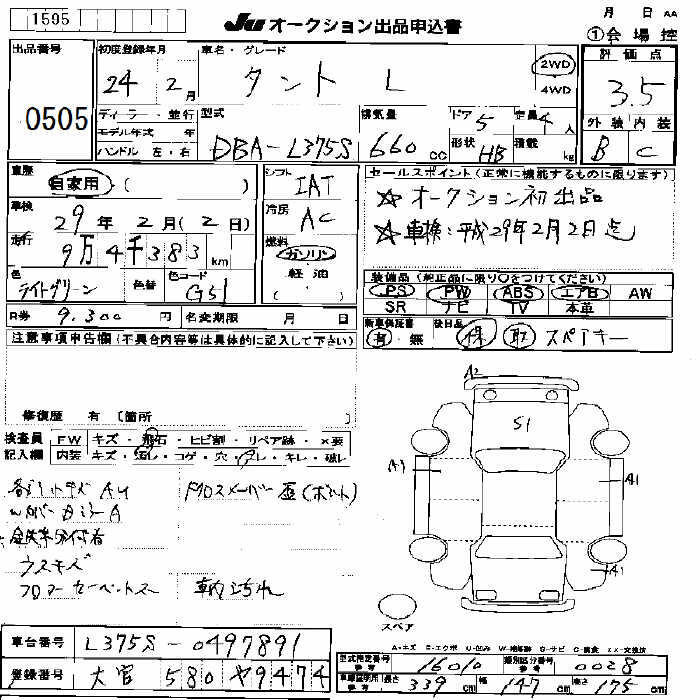 1595
JU オークション出品申込書
月 日 AA
①会場控
出品番号
0505
初度登録年月
24年 2月
車名・グレード
タント L
2WD
4WD
評価点
3.5
外装 内装
B C
ディーラー・並行
モデル年式 年
ハンドル 左・右
型式
DBA-L375S
排気量
660 cc
ドア 5
形状 HB
定員 4人
積載 kg
車歴
自家用 ( )
シフト IAT
セールスポイント(正常に機能するものに限ります)
☆オークション初出品
☆車検:平成29年2月2日迄
車検 29年 2月(2日)
冷房 AC
走行 9万4千383km
燃料 ガソリン
軽油
( )
色 ライトグリーン
色替
色コード G51
装備品(純正品に限り○をつけてください)
PS PW ABS エアB AW
SR ナビ TV 本革
R券 9,300円
名変期限 月 日
新車保証書 有・無
後日品 保 取 スペアキー
注意事項申告欄(不具合内容等は具体的に記入して下さい)
修復歴 有 〔箇所
検査員
記入欄
FW キズ・飛石・ヒビ割・リペア跡・×要
内装 キズ・汚レ・コゲ・穴・スレ・キレ・破レ
A2
S1
A1
A1
A1
スペア
ウスキズ
フロアーカーペット
車内汚れ
A-キズ E-エクボ U-凹み W-補修跡 S-サビ C-腐食 XX-交換済
車台番号 L375S-0497891
登録番号 大宮 580 や 9474
型式指定番号 参考 16010
類別区分番号 参考 0028
車検証明用 参考 長さ 339cm 幅 147cm 高さ 175cm